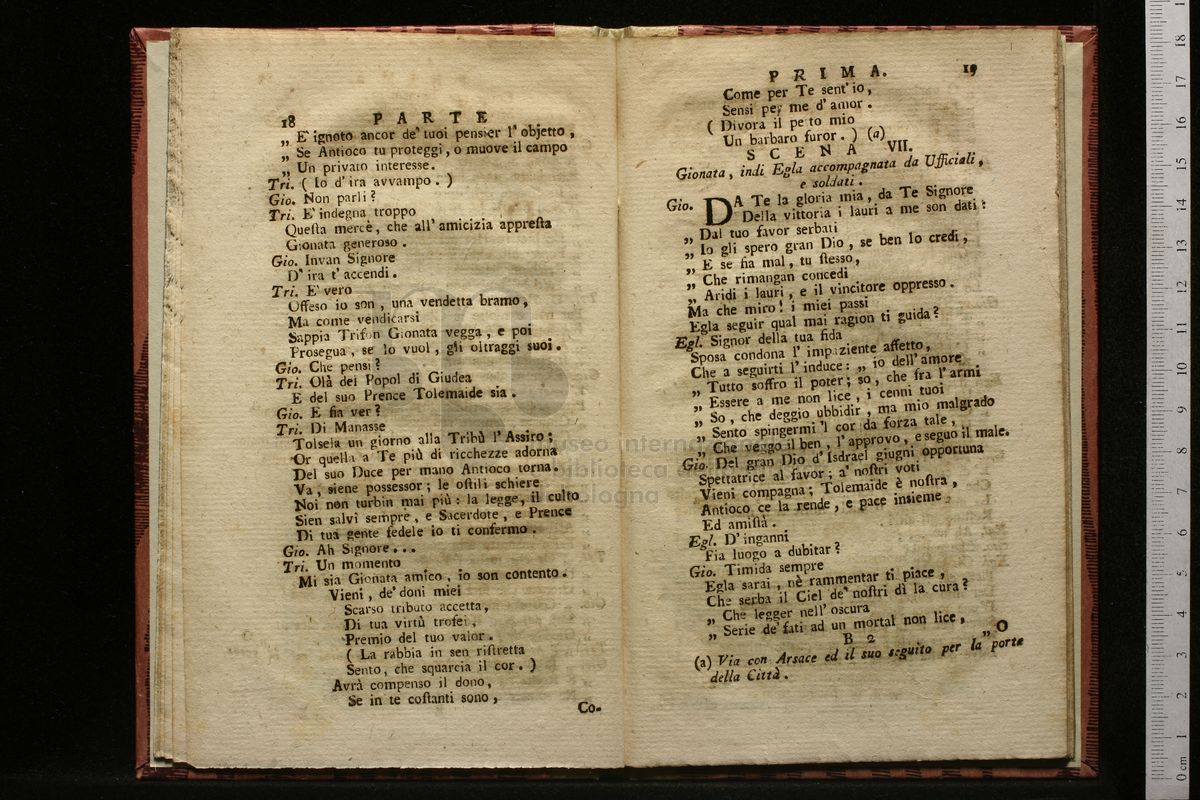 18 PARTE
„ E' ignoto ancor de' tuoi pensier l' objetto ,
„ Se Antioco tu proteggi, o muove il campo
„ Un privato interesse.
Tri. ( Io d' ira avvampo. )
Gio. Non parli?
Tri. E' indegna troppo
Questa mercè, che all' amicizia appresta
Gionata generoso .
Gio. Invan Signore
D' ira t' accendi .
Tri. E' vero
Offeso io son , una vendetta bramo,
Ma come vendicarsi
Sappia Trifon Gionata vegga , e poi
Prosegua , se lo vuol, gli oltraggi suoi.
Gio. Che pensi?
Tri. Olà del Popol di Giudea
E del suo Prence Tolemaide sia .
Gio. E fia ver?
Tri. Di Manasse
Tolsela un giorno alla Tribù l' Assiro;
Or quella a Te più di ricchezze adorna
Del suo Duce per mano Antioco torna.
Va, siene possessor; le ostili schiere
Noi non turbin mai più: la legge, il culto
Sien salvi sempre, e Sacerdote, e Prence
Di tua gente fedele io ti confermo .
Gio. Ah Signore...
Tri. Un momento
Mi sia Gionata amico, io son contento.
Vieni, de' doni miei
Scarso tributo accetta,
Di tua virtù trofei,
Premio del tuo valor.
( La rabbia in sen ristretta
Sento, che squarcia il cor. )
Avrà compenso il dono,
Se in te costanti sono ,
Co-
PRIMA. 19
Come per Te sent' io,
Sensi per me d' amor .
( Divora il petto mio
Un barbaro furor. ) (a)
SCENA VII.
Gionata, indi Egla accompagnata da Ufficiali,
e soldati.
Gio. DA Te la gloria mia, da Te Signore
Della vittoria i lauri a me son dati:
„ Dal tuo favor serbati
„ Io gli spero gran Dio , se ben lo credi,
„ E se fia mal, tu stesso,
„ Che rimangan concedi
„ Aridi i lauri, e il vincitore oppresso.
Ma che miro! i miei passi
Egla seguir qual mai ragion ti guida?
Egl. Signor della tua fida
Sposa condona l' impaziente affetto,
Che a seguirti l' induce: „ io dell' amore
„ Tutto soffro il poter; so, che fra l' armi
„ Essere a me non lice, i cenni tuoi
„ So, che deggio ubbidir, ma mio malgrado
„ Sento spingermi 'l cor da forza tale,
„ Che veggo il ben, l' approvo, e seguo il male.
Gio. Del gran Dio d' Isdrael giugni opportuna
Spettatrice al favor; a' nostri voti
Vieni compagna; Tolemaide è nostra,
Antioco ce la rende, e pace insieme,
Ed amistà.
Egl. D' inganni
Fia luogo a dubitar?
Gio. Timida sempre
Egla sarai, nè rammentar ti piace,
Che serba il Ciel de' nostri dì la cura?
„ Che legger nell' oscura
„ Serie de' fati ad un mortal non lice,
B 2 „ O
(a) Via con Arsace ed il suo seguito per la porta
della Città.
museo internazionale
biblioteca
bologna